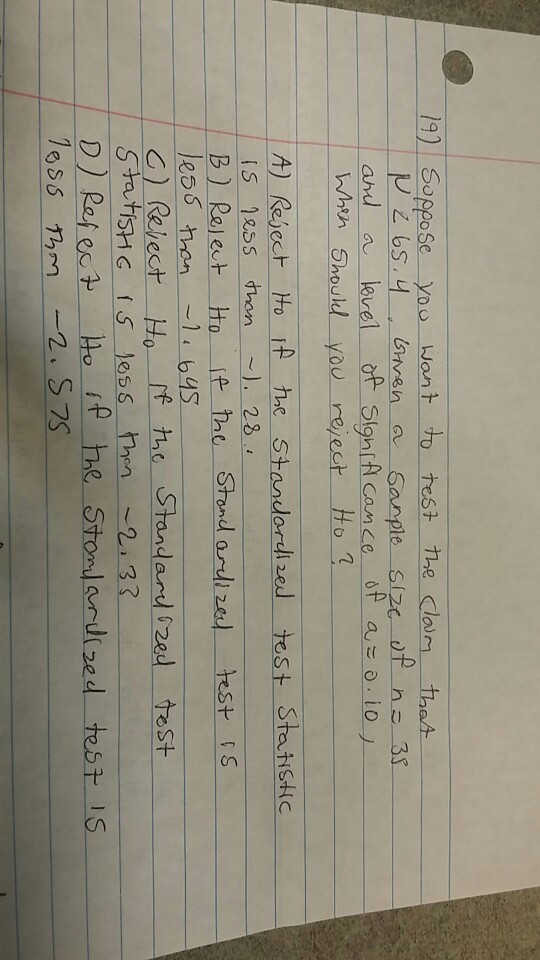 19) Suppose you want to test the claim that
μ ≥ 65.4. Given a sample size of n = 35
and a level of significance of a = 0.10,
when should you reject Ho?
A) Reject Ho if the standardized test statistic
is less than -1.28.
B) Reject Ho if the standardized test is
less than -1.645
C) Reject Ho if the standardized test
statistic is less than -2.33
D) Reject Ho if the standardized test is
less than -2.575